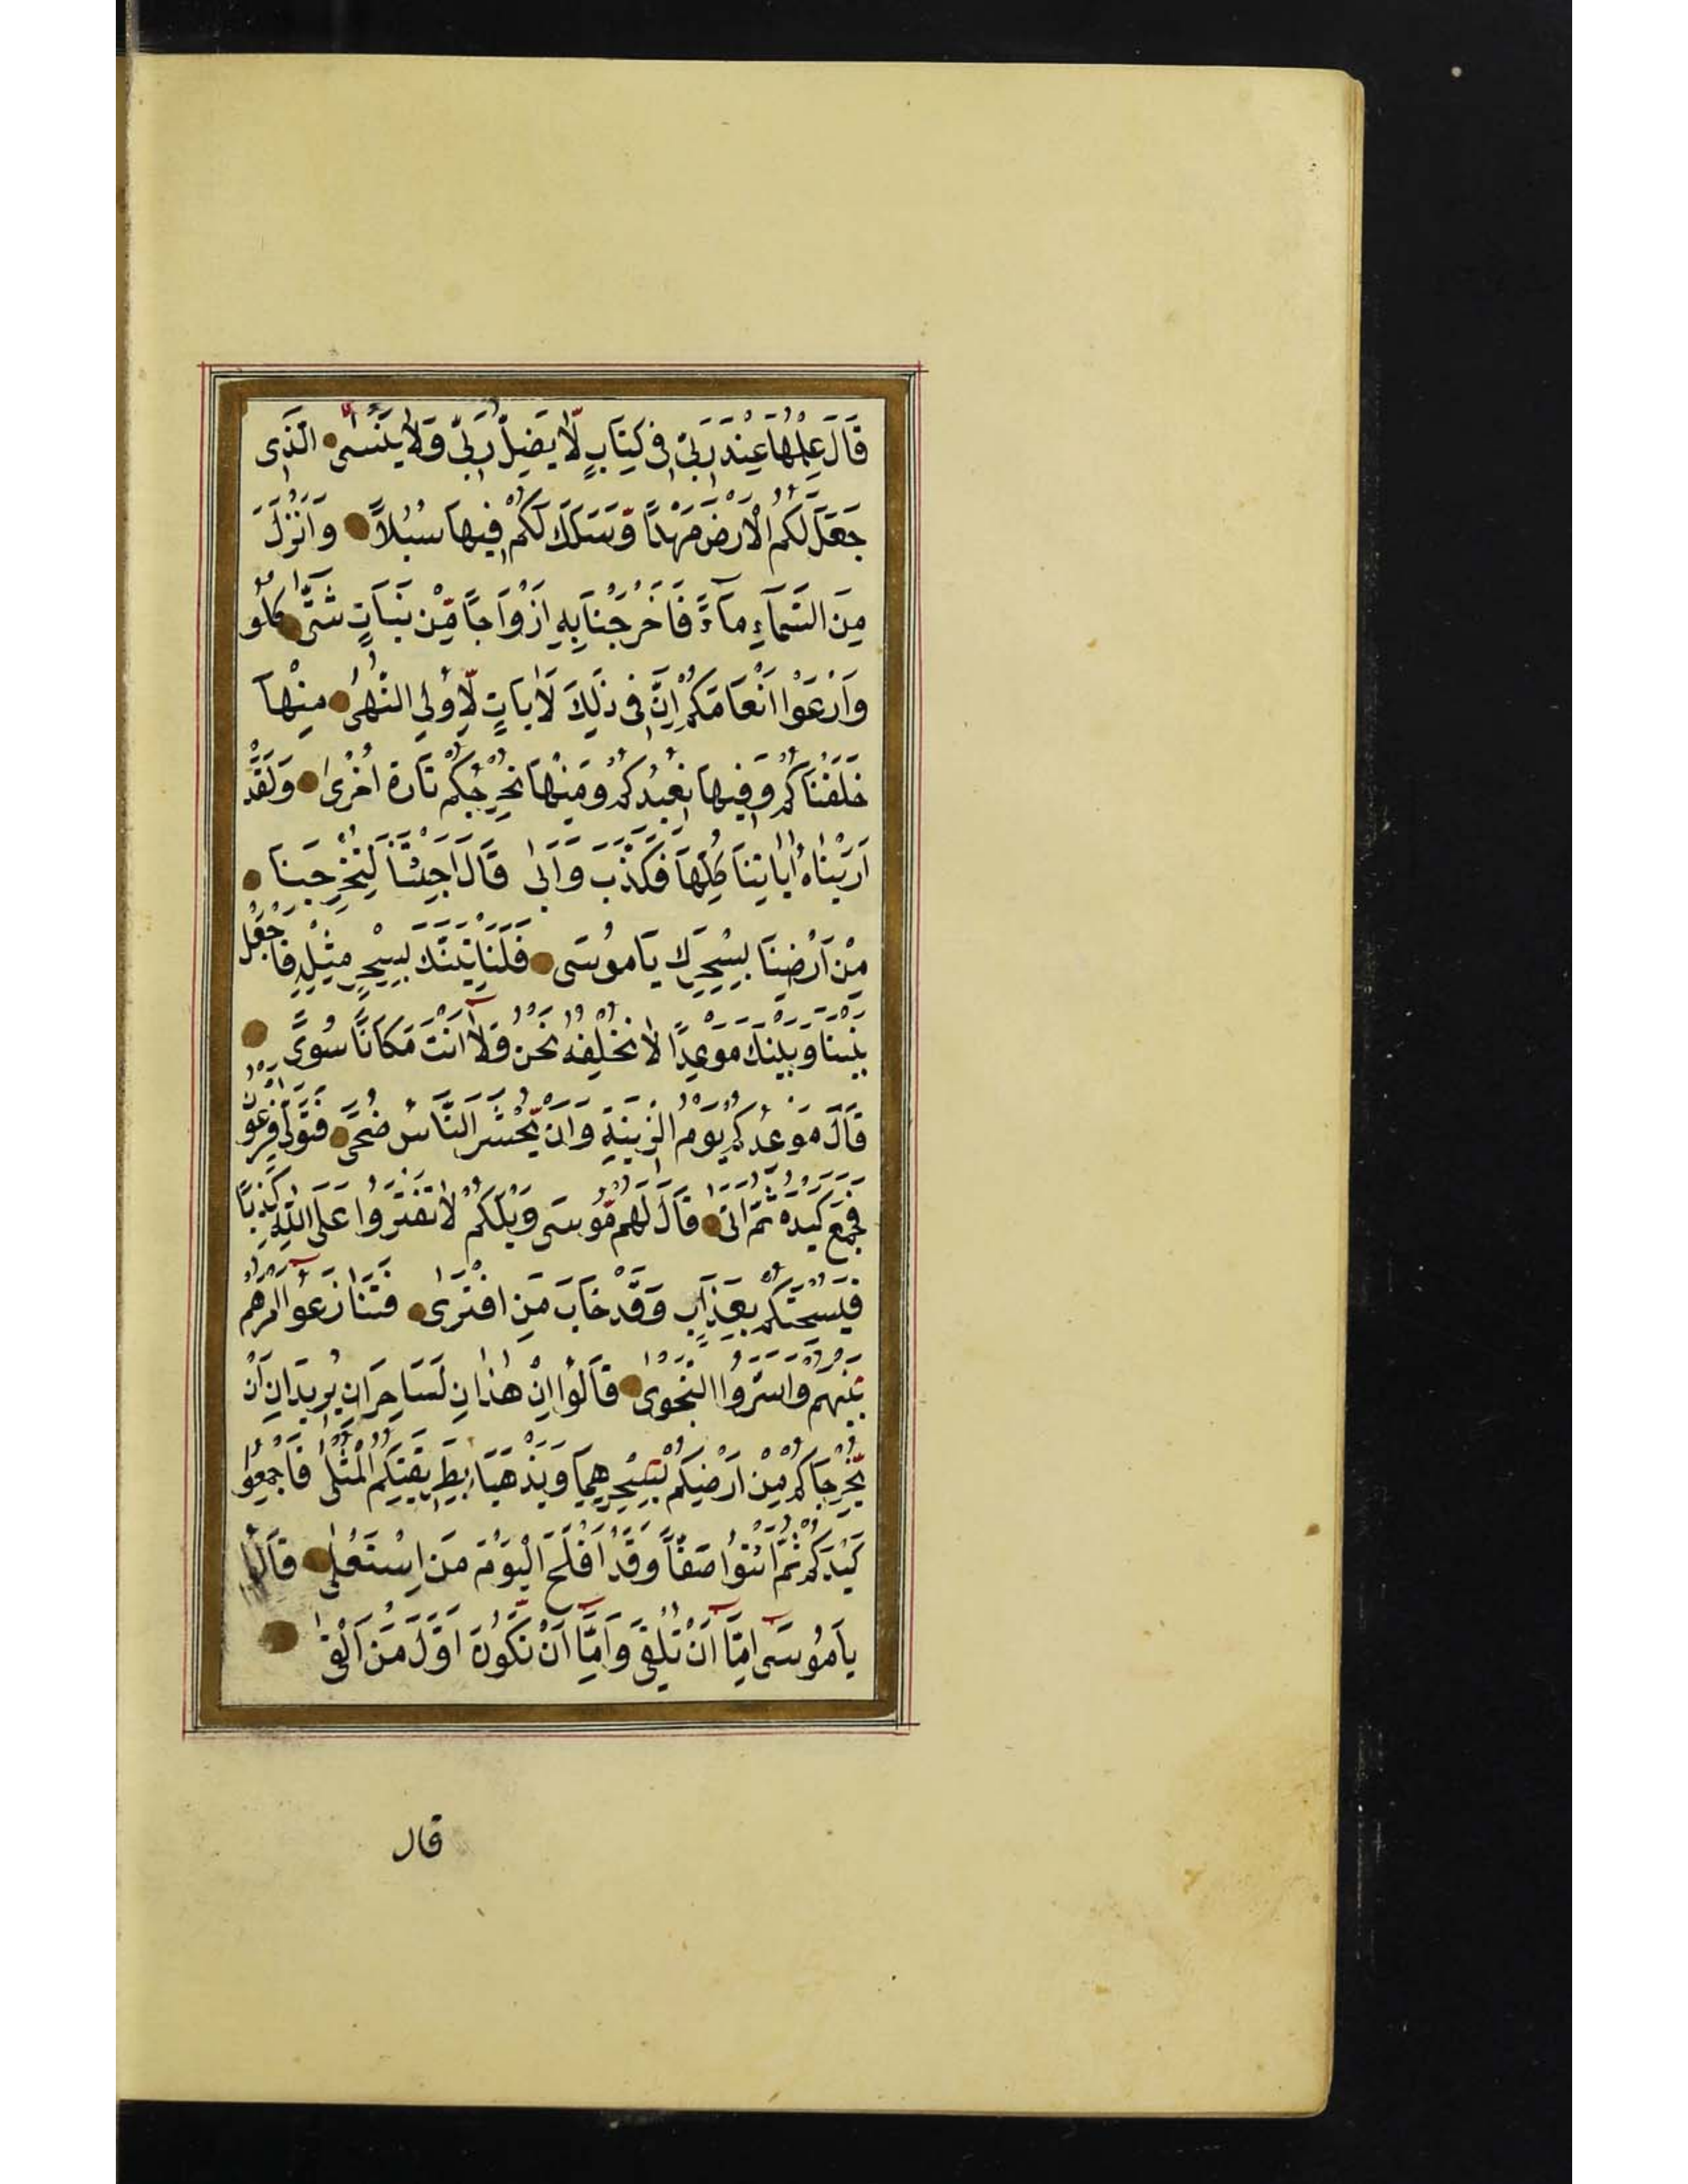 قَالَ عِلْمُهَا عِنْدَ رَبّى فى كِتَابٍ لَّا يَضِلُّ رَبّى وَلَا يَنْسٰى الَّذى
جَعَلَ لَكُمُ الْاَرْضَ مَهْدًا وَّسَلَكَ لَكُمْ فيهَا سُبُلًا وَاَنْزَلَ
مِنَ السَّمَآءِ مَآءً فَاَخْرَجْنَا بِهِ اَزْوَاجًا مِّنْ نَبَاتٍ شَتّٰى كُلُو
وَارْعَوْا اَنْعَامَكُمْ اِنَّ فى ذٰلِكَ لَاٰيَاتٍ لِّاُولِي النُّهٰى مِنْهَا
خَلَقْنَاكُمْ وَفيهَا نُعيدُكُمْ وَمِنْهَا نُخْرِجُكُمْ تَارَة اُخْرٰى وَلَقَدْ
اَرَيْنَاهُ اٰيَاتِنَا كُلَّهَا فَكَذَّبَ وَاَبٰى قَالَ اَجِئْتَنَا لِتُخْرِجَنَا
مِنْ اَرْضِنَا بِسِحْرِكَ يَا مُوسٰى فَلَنَأْتِيَنَّكَ بِسِحْرٍ مِثْلِهِ فَاجْعَلْ
بَيْنَنَا وَبَيْنَكَ مَوْعِدًا لَا نُخْلِفُهُ نَحْنُ وَلَا اَنْتَ مَكَانًا سُوًى
قَالَ مَوْعِدُكُمْ يَوْمُ الزّينَةِ وَاَنْ يُّحْشَرَ النَّاسُ ضُحًى فَتَوَلّٰى فِرْعَوْنُ
فَجَمَعَ كَيْدَهُ ثُمَّ اَتٰى قَالَ لَهُمْ مُّوسٰى وَيْلَكُمْ لَا تَفْتَرُوا عَلَى اللّٰهِ كَذِبًا
فَيُسْحِتَكُمْ بِعَذَابٍ وَقَدْ خَابَ مَنِ افْتَرٰى فَتَنَازَعُوا اَمْرَهُمْ
بَيْنَهُمْ وَاَسَرُّوا النَّجْوٰى قَالُوا اِنْ هٰذَانِ لَسَاحِرَانِ يُريدَانِ اَنْ
يُّخْرِجَاكُمْ مِنْ اَرْضِكُمْ بِسِحْرِهِمَا وَيَذْهَبَا بِطَريقَتِكُمُ الْمُثْلٰى فَاَجْمِعُوا
كَيْدَكُمْ ثُمَّ ائْتُوا صَفًّا وَقَدْ اَفْلَحَ الْيَوْمَ مَنِ اسْتَعْلٰى قَالُوا
يَا مُوسٰى اِمَّا اَنْ تُلْقِىَ وَاِمَّا اَنْ نَّكُونَ اَوَّلَ مَنْ اَلْقٰى
قال